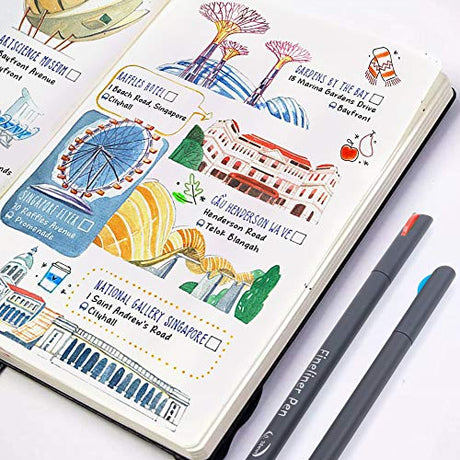 ARTSCIENCE MUSEUM
Bayfront Avenue
Bayfront
GARDENS BY THE BAY
18 Marina Gardens Drive
Bayfront
RAFFLES HOTEL
1 Beach Road, Singapore
Cityhall
SINGAPORE FLYER
30 Raffles Avenue
Promenade
CẦU HENDERSON WAVE
Henderson Road
Telok Blangah
NATIONAL GALLERY SINGAPORE
1 Saint Andrew's Road
Cityhall
Fineliner Pen